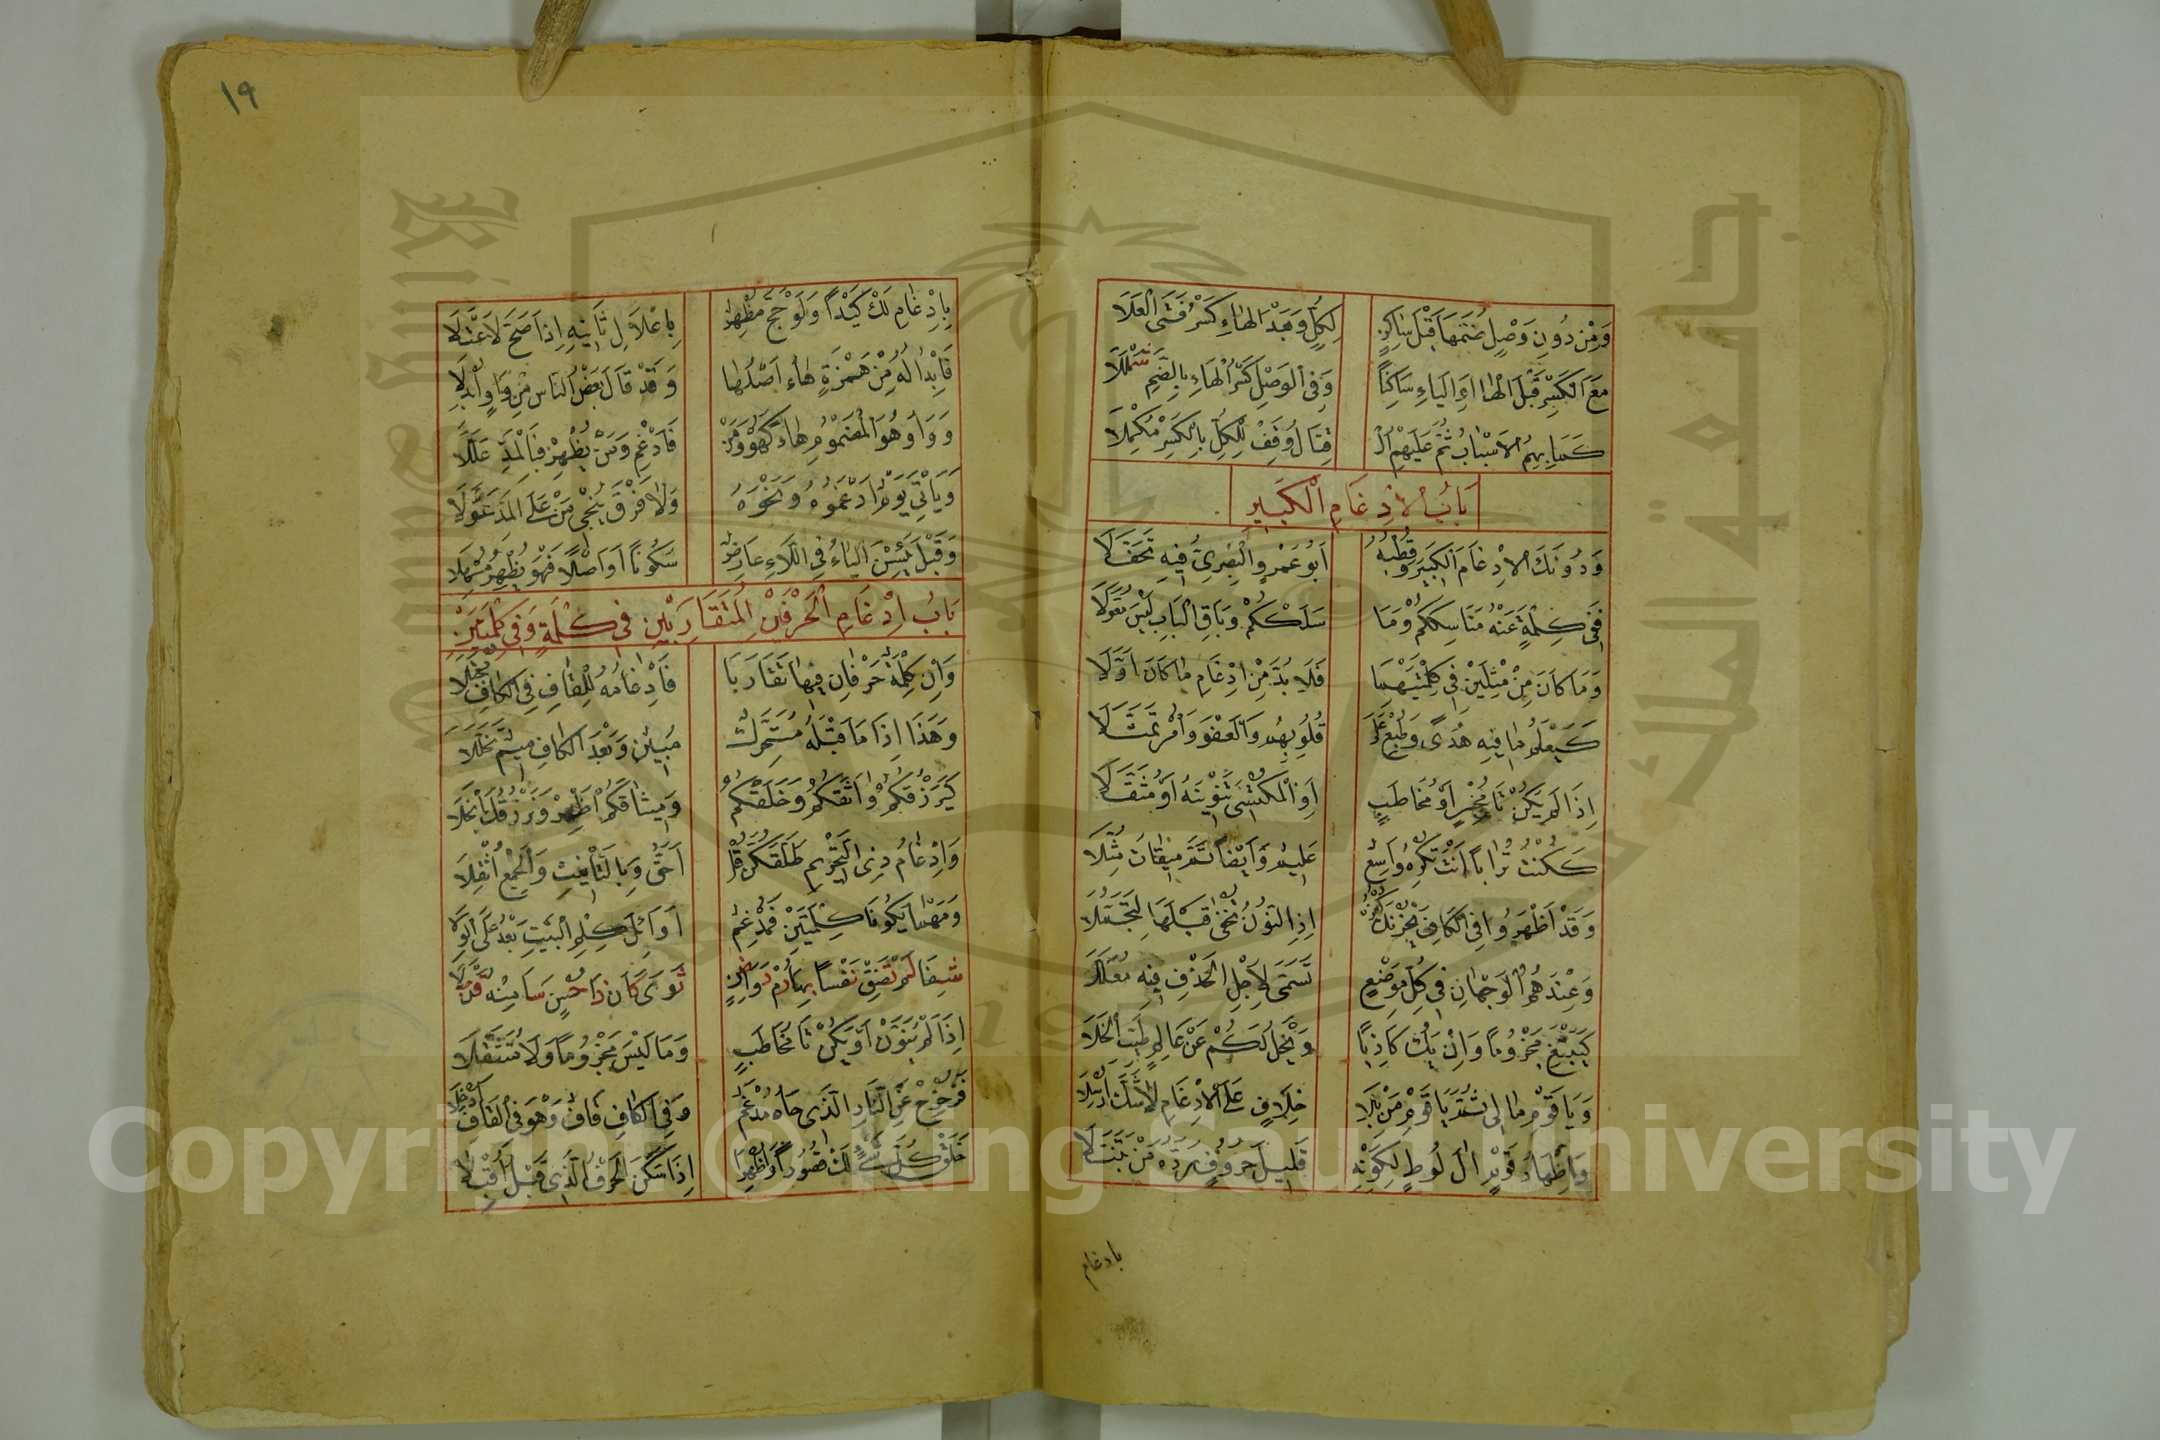 وَمِنْ دُونِ وَصْلٍ ضُمَّهَا قَبْلَ سَاكِنٍ لِكُلٍّ وَبَعْدَ الهَاءِ كَسْرُ فَتَى الْعَلَا
مَعَ الْكَسْرِ قَبْلَ الْهَا اَوِ الْيَاءِ سَاكِنًا وَفِي الْوَصْلِ كَسْرُ الْهَاءِ بِالضَّمِّ شَمْلَلَا
كَمَا بِهِمُ الْاَسْبَابُ ثُمَّ عَلَيْهِمُ الْ قِتَالُ وَقِفْ لِلْكُلِّ بِالْكَسْرِ مُكْمِلَا
بَابُ الْاِدْغَامِ الْكَبِيرِ
وَدُونَكَ الْاِدْغَامَ الْكَبِيرَ وَقُطْبُهُ اَبُو عَمْرٍو الْبَصْرِيُّ فِيهِ تَحَفَّلَا
فَفِي كِلْمَةٍ عَنْهُ مَنَاسِكَكُمْ وَمَا سَلَكْكُمْ وَبَاقِي الْبَابِ لَيْسَ مُعَوَّلَا
وَمَا كَانَ مِنْ مِثْلَيْنِ فِي كِلْمَتَيْهِمَا فَلَا بُدَّ مِنْ اِدْغَامِ مَا كَانَ اَوَّلَا
كَيَعْلَمُ مَا فِيهِ هُدًى وَطُبِعْ عَلَى قُلُوبِهِمُ وَالْعَفْوَ وَأْمُرْ تَمَثَّلَا
اِذَا لَمْ يَكُنْ تَا مُخْبِرٍ اَوْ مُخَاطَبٍ اَوِ الْمُكْتَسِي تَنْوِينُهُ اَوْ مُثَقَّلَا
كَكُنْتُ تُرَابًا اَنْتَ تُكْرِهُ وَاسِعٌ عَلِيمٌ وَاَيْضًا تَمَّ مِيقَاتُ مُثِّلَا
وَقَدْ اَظْهَرُوا فِي الْكَافِ يَحْزُنْكَ كُفْرُهُ اِذِ النُّونُ تُخْفَى قَبْلَهَا لِتُجَمَّلَا
وَعِنْدَهُمُ الْوَجْهَانِ فِي كُلِّ مَوْضِعٍ تَسَمَّى لِاَجْلِ الْحَذْفِ فِيهِ مُعَلَّلَا
كَيَبْتَغِ مَجْزُومًا وَاِنْ يَكُ كَاذِبًا وَيَخْلُ لَكُمْ عَنْ عَالِمٍ طَيِّبِ الْخَلَا
وَيَا قَوْمِ مَا لِي ثُمَّ يَا قَوْمِ مَنْ بِلَا خِلَافٍ عَلَى الْاِدْغَامِ لَا شَكَّ اُرْسِلَا
وَاِظْهَارُ قَوْمٍ اٰلَ لُوطٍ لِكَوْنِهِ قَلِيلَ حُرُوفٍ رَدَّهُ مَنْ تَنَبَّلَا
بادغام
١٩
بِاِدْغَامِ لَكَ كَيْدًا وَلَوْ حَجَّ مُظْهِرٌ بِاِعْلَالِ ثَانِيهِ اِذَا صَحَّ لَاعْتَلَا
فَاِبْدَالُهُ مِنْ هَمْزَةٍ هَاءُ اَصْلُهَا وَقَدْ قَالَ بَعْضُ النَّاسِ مِنْ وَاوٍ اُبْدِلَا
وَوَاوُ هُوَ الْمَضْمُومُ هَاءً كَهُوْ وَمَنْ فَاَدْغِمْ وَمَنْ يُظْهِرْ فَبِالْمَدِّ عَلَّلَا
وَيَأْتِيَ يَوْمٌ اَدْغَمُوهُ وَنَحْوَهُ وَلَا فَرْقَ يُنْجِي مَنْ عَلَى الْمَدِّ عَوَّلَا
وَقَبْلَ يَئِسْنَ الْيَاءُ فِي اللَّاءِ عَارِضٌ سُكُونًا اَوَ اَصْلًا فَهْوَ يُظْهِرُ مُسْهِلَا
بَابُ اِدْغَامِ الْحَرْفَيْنِ الْمُتَقَارِبَيْنِ فِي كَلْمَةٍ وَفِي كَلِمَتَيْنِ
وَاِنْ كِلْمَةٌ حَرْفَانِ فِيهَا تَقَارَبَا فَاِدْغَامُهُ لِلْقَافِ فِي الْكَافِ مُجْتَلَا
وَهَذَا اِذَا مَا قَبْلَهُ مُتَحَرِّكٌ مُبِينٌ وَبَعْدَ الْكَافِ مِيمٌ تَخَلَّلَا
كَيَرْزُقْكُمُ وَاثَقْكُمُ وَخَلَقْكُمُ وَمِيثَاقَكُمْ اَظْهِرْ وَنَرْزُقُكَ انْجَلَا
وَاِدْغَامُ ذِي التَّحْرِيمِ طَلَّقَكُنَّ قُلْ اَحَقُّ وَبِالتَّأْنِيثِ وَالْجَمْعِ اُثْقِلَا
وَمَهْمَا يَكُونَا كِلْمَتَيْنِ فَمُدْغِمٌ اَوَائِلَ كِلْمِ الْبَيْتِ بَعْدُ عَلَى الْوِلَا
شِفَا لَمْ تَضِقْ نَفْسًا بِهَا رُمْ دَوَا ضَنٍ ثَوَى كَانَ ذَا حُسْنٍ سَأَى مِنْهُ قَدْ جَلَا
اِذَا لَمْ يُنَوَّنْ اَوْ يَكُنْ تَا مُخَاطَبٍ وَمَا لَيْسَ مَجْزُومًا وَلَا مُتَثَقِّلَا
فَزُحْزِحَ عَنِ النَّارِ الَّذِي حَاهُ مُدْغَمٌ وَفِي الْكَافِ قَافٌ وَهْوَ فِي الْقَافِ اُدْخِلَا
خَلَقَ كُلَّ شَيْءٍ لَكَ قُصُورًا وَاَظْهِرَا اِذَا سَكَنَ الْحَرْفُ الَّذِي قَبْلُ اُقْبِلَا
Copyright © King Saud University
جامعة الملك
King Saud
1957